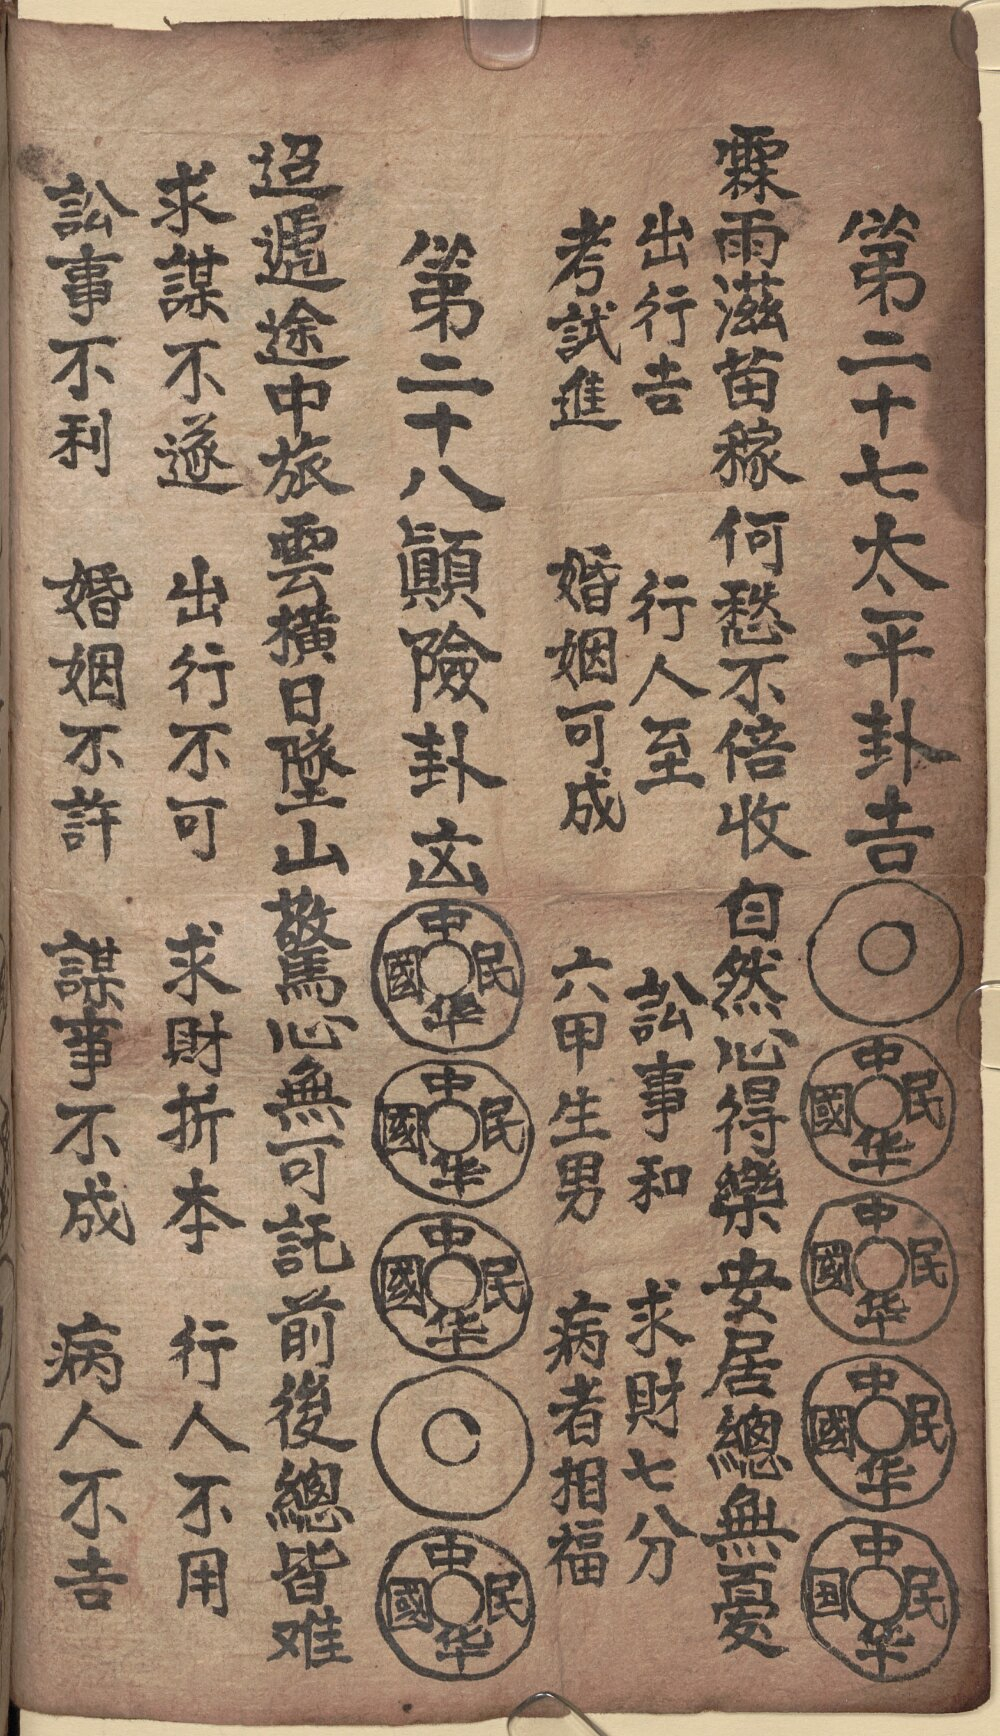 第二十七太平卦吉
中華民國
中華民國
中華民國
中華民国
霖雨滋苗稼何愁不倍收自然心得樂安居總無憂
出行吉 行人至 訟事和 求財七分
考試進 婚姻可成 六甲生男 病者相福
第二十八顚險卦凶
中華民國
中華民國
中華民國
中华民國
迢遞途中旅雲横日墜山驚心無可託前後總皆难
求謀不遂 出行不可 求財折本 行人不用
訟事不利 婚姻不許 謀事不成 病人不吉